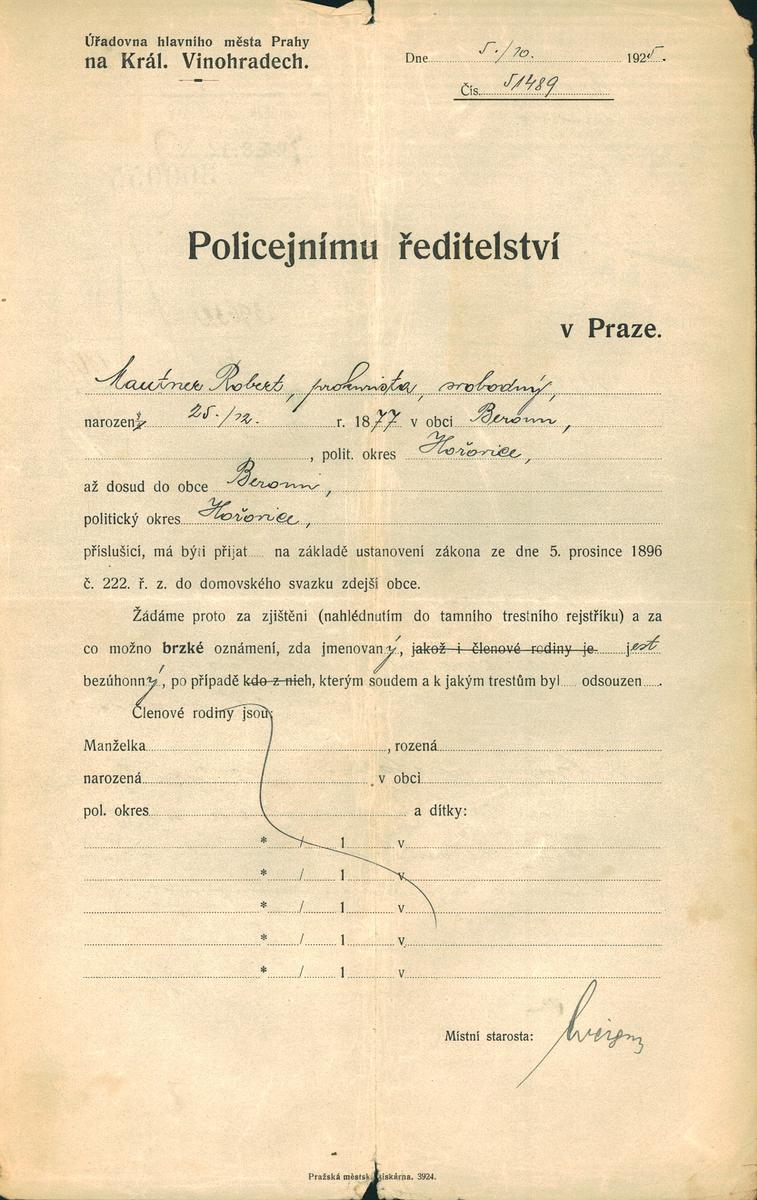 Úřadovna hlavního města Prahy
na Král. Vinohradech.
Dne 5./10. 1925.
Čís. 51489
Policejnímu ředitelství
v Praze.
Mautner Robert, prokurista, svobodný,
narozen 25./12. r. 1877 v obci Beroun,
, polit. okres Hořovice,
až dosud do obce Beroun,
politický okres Hořovice,
příslušící, má býti přijat na základě ustanovení zákona ze dne 5. prosince 1896
č. 222. ř. z. do domovského svazku zdejší obce.
Žádáme proto za zjištění (nahlédnutím do tamního trestního rejstříku) a za
co možno brzké oznámení, zda jmenovaný, jakož i členové rodiny je jest
bezúhonný, po případě kdo z nich, kterým soudem a k jakým trestům byl odsouzen.
Členové rodiny jsou:
Manželka , rozená
narozená v obci
pol. okres a dítky:
* / 1 v
* / 1 v
* / 1 v
* / 1 v
* / 1 v
Místní starosta:
Pražská městsk. tiskárna. 3924.